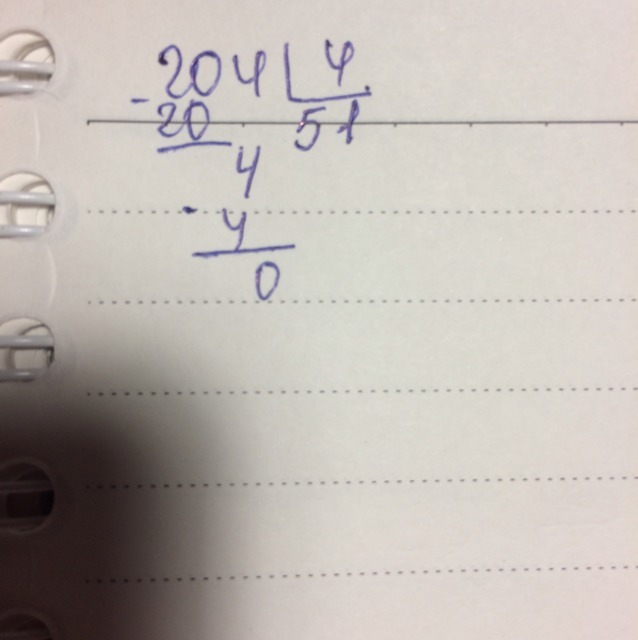 204 | 4
- 20 51
4
- 4
0